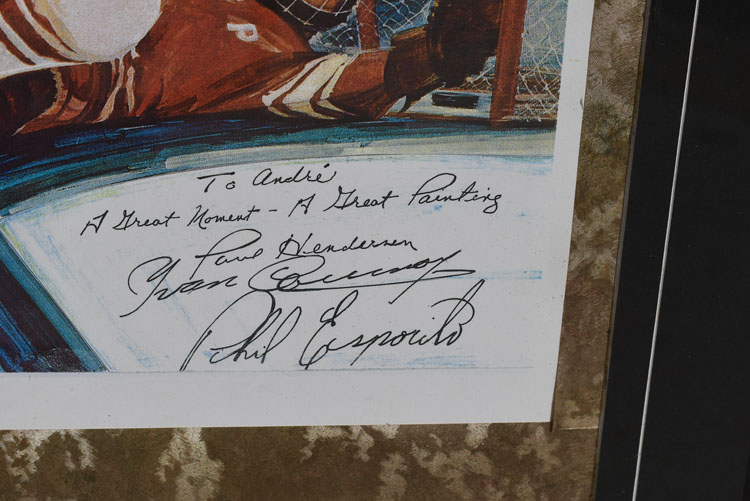 P
To André
A Great Moment - A Great Painting
Paul Henderson
Yvan Cournoyer
Phil Esposito